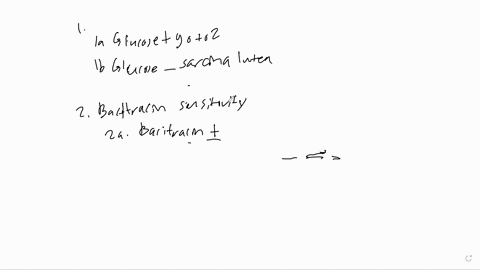 1.
1a Glucose + go to 2
1b Glucose – sarcina lutea
2. Bacitracin sensitivity
2a. Bacitracin +
–